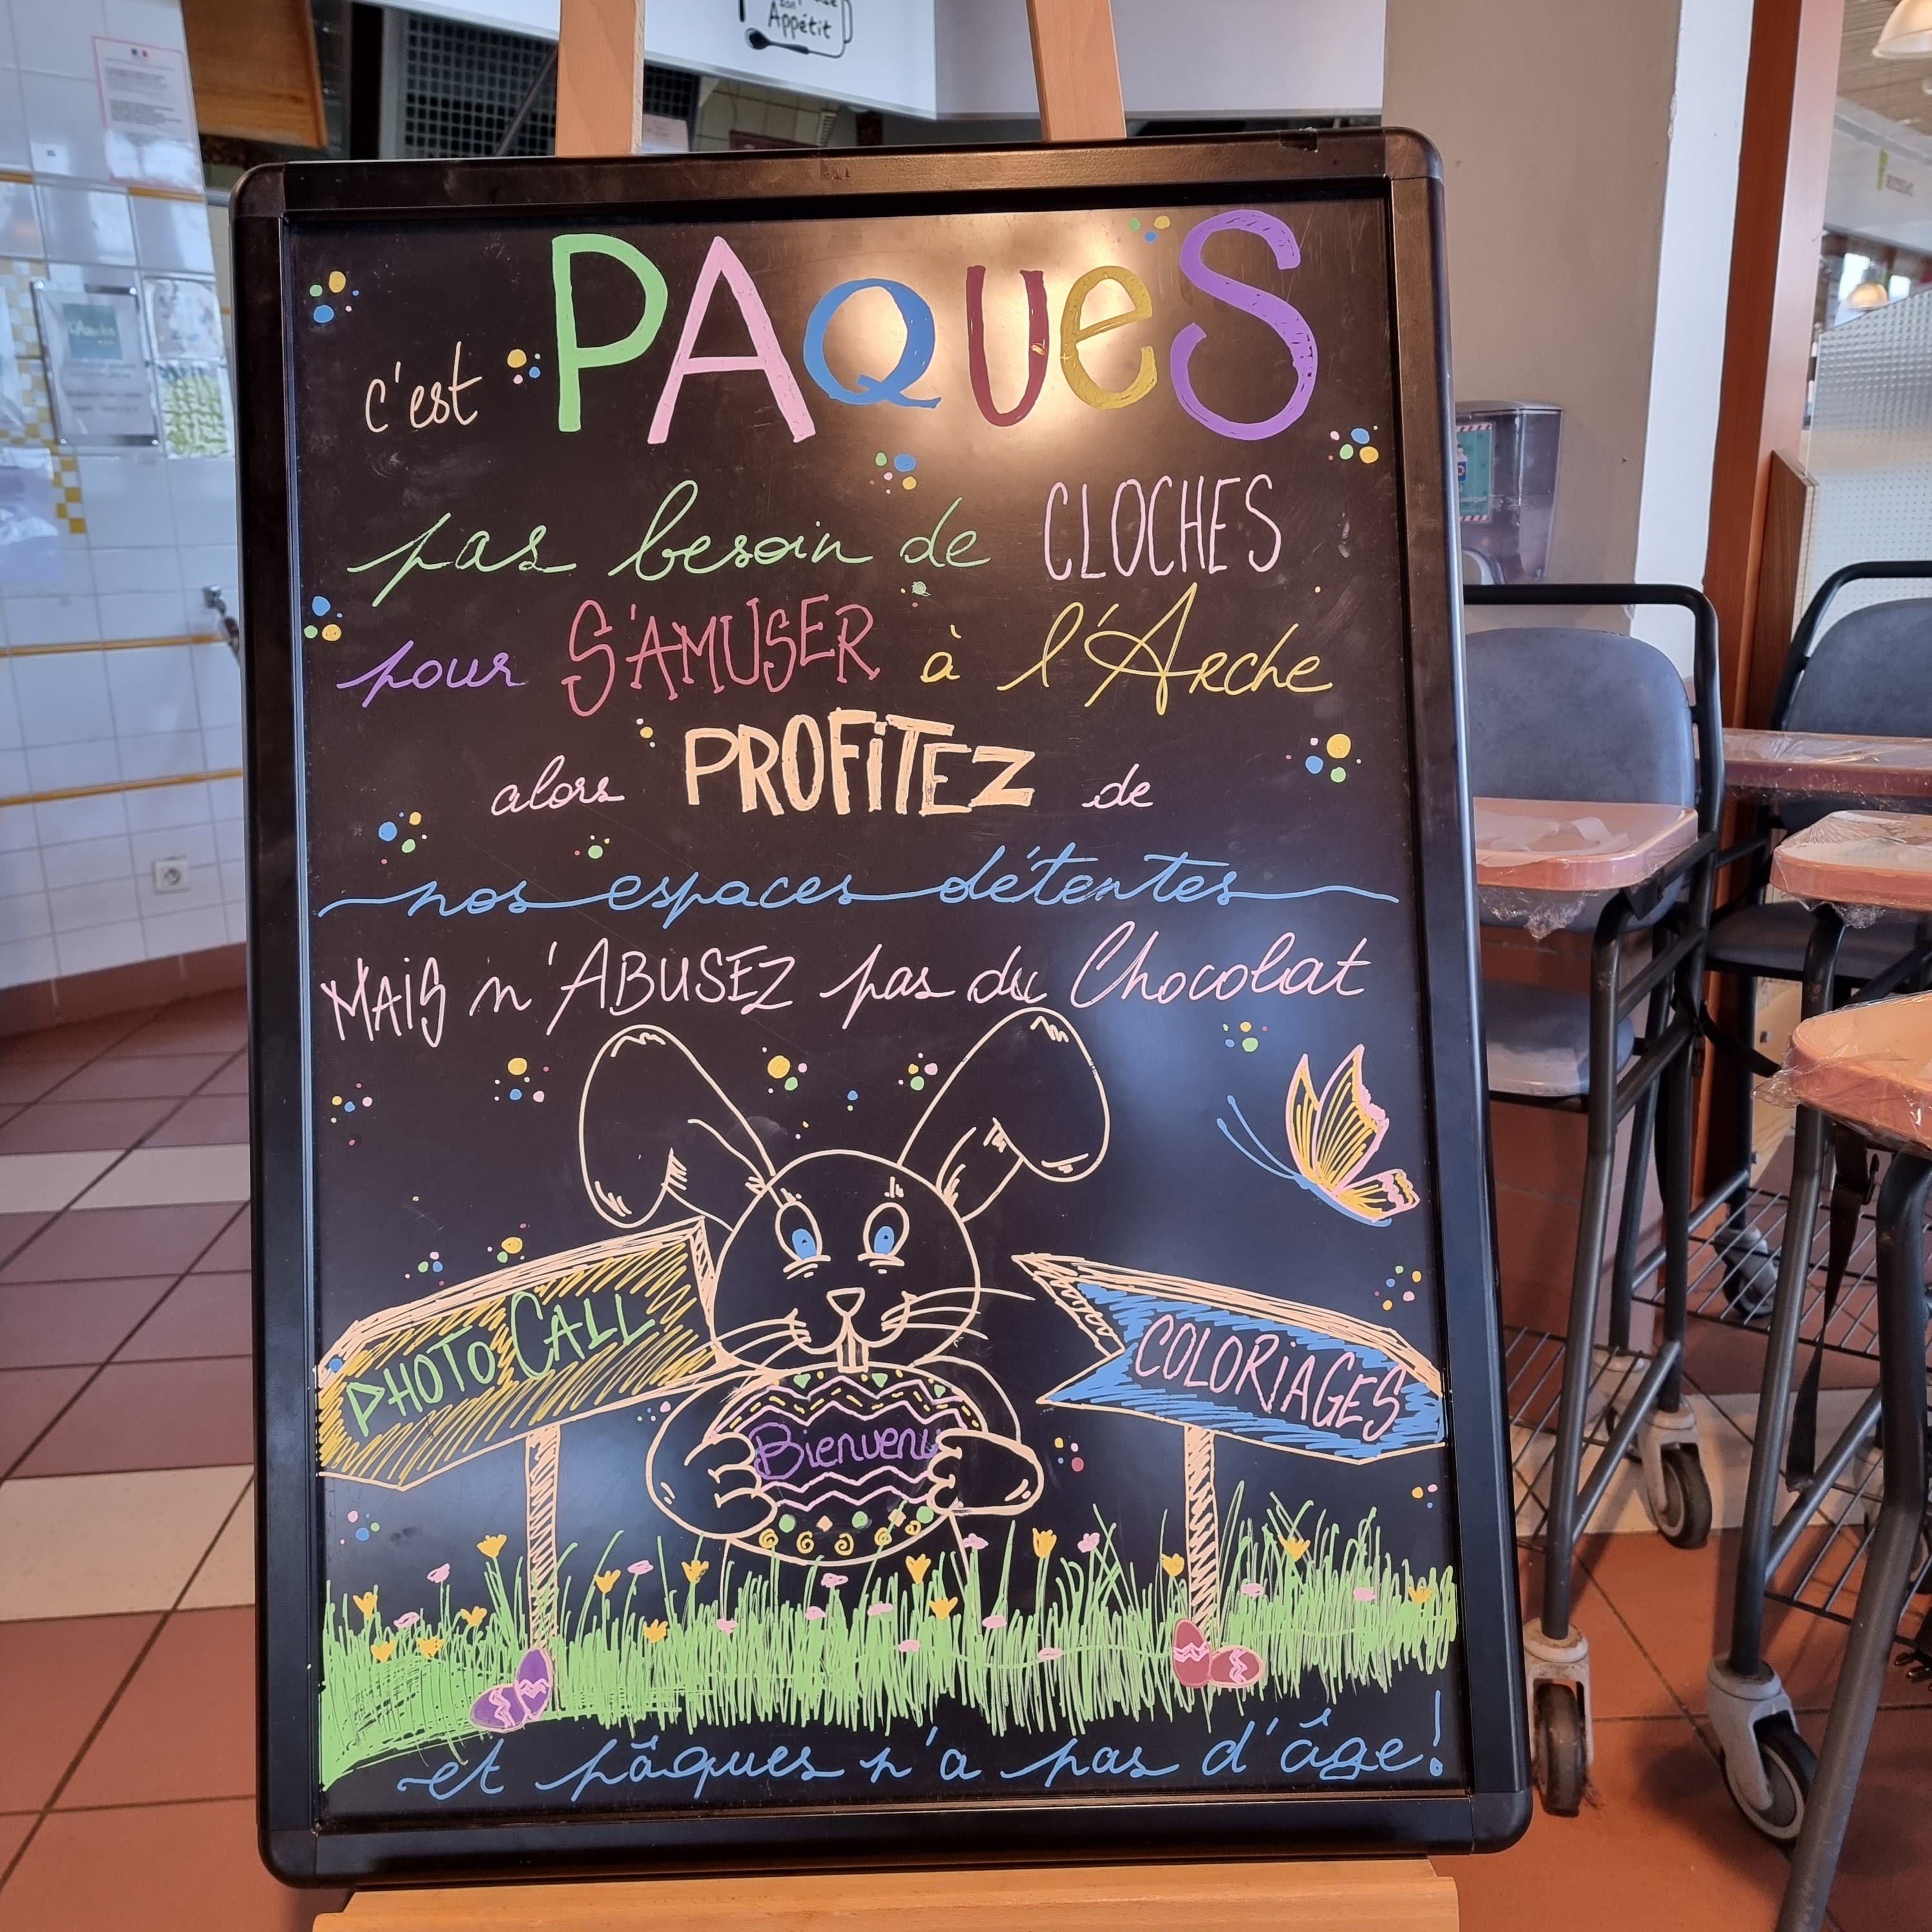 Appétit
c'est PAQUeS
pas besoin de CLOCHES
pour S'AMUSER à l'Arche
alors PROFiTEZ de
nos espaces détentes
MAiS n'ABUSEZ pas du Chocolat
PHOTO CALL
COLORiAGES
Bienvenu
et pâques n'a pas d'âge!